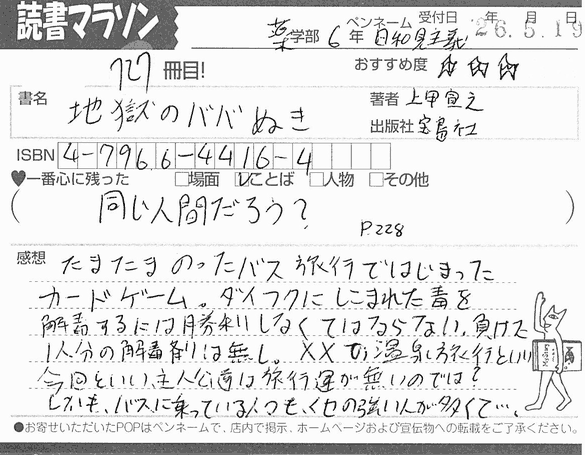 読書マラソン
薬学部 6年 ペンネーム 日和見主義 受付日 年 月 日 26.5.19
727冊目! おすすめ度 ☆☆☆
書名 地獄のババぬき 著者 上甲宣之
出版社 宝島社
ISBN 4-7966-4416-4
♥一番心に残った □場面 ☑ことば □人物 □その他
(同じ人間だろう? P.228)
感想 たまたまのったバス旅行ではじまった
カードゲーム。ダイフクにしこまれた毒を
解毒するには勝利しなくてはならない。負けた
1人分の解毒剤は無し。××温泉旅行といい
今回といい主人公達は旅行運が無いのでは?
しかも、バスに乗っている人つも、くせの強い人が多くて…。
●お寄せいただいたPOPはペンネームで、店内で掲示、ホームページおよび宣伝物への転載をご了承ください。